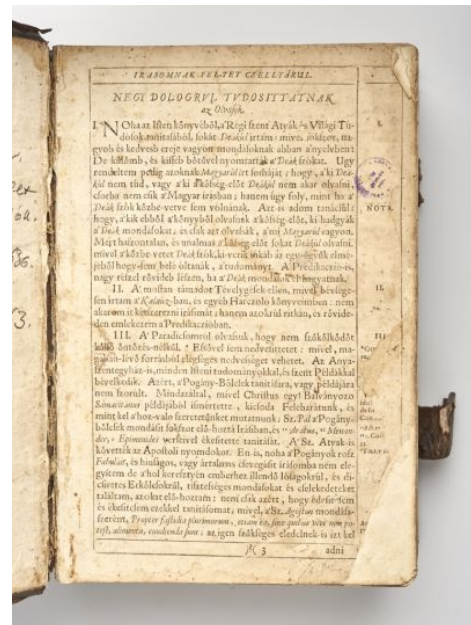 IRASOMNAK FEL-TÉT CZELLYÁRUL.
NÉGI DOLOGRVL TVDOSITTATNAK
az Olvasók.
I. NOha az Isten könyvéböl, a' Régi szent Atyák és Világi Tu-
dosok tanitásából, sokat Deákúl irtam: mivel sokszor, na-
gyob és kedvesb ereje vagyon mondásoknak abban a' nyelvben:
De külömb, és kisseb bötüvel nyomtatták a' Deák szókat. Ugy
rendeltem pedig azoknak Magyarúl irt fordását; hogy, a' ki Deá-
kúl nem tud, vagy a' ki a' kösség-elöt Deákúl nem akar olvasni,
csorba nem esik a' Magyar irásban; hanem úgy foly, mint ha a'
Deák szók közbe-vetve sem vólnának. Azt-is adom tanácsúl:
hogy, a' kik ebböl a' könyvböl olvasnak a' kösség-elöt, ki-hadgyák
a' Deák mondásokat, és csak azt olvassák, a' mi Magyarúl vagyon.
Mert haszontalan, és unalmas a' kösség elöt sokat Deákúl olvasni.
mivel a' közbe-vetet Deák szók,
jéböl hogy-sem bélé óltanák, a' tudományt. A' Predikáctio-is,
nagy részzel rövideb lészen, ha a' Deák mondások el hagyatnak.
II. A' mostan támadot Tévelygések ellen, mivel bövsége-
sen irtam a' Kalauz-ban, és egyéb Harczoló könyveimben: nem
akarom it kétszerezni irásimat; hanem azokrúl ritkán, és rövide-
den emlekezem a' Predikáctióban.
III. A' Paradicsomrúl olvassuk, hogy nem szükölködöt
külsö öntözés-nélkül. Esövel sem nedvesittetet: mivel, ma-
gában-lévö forrásbúl elégséges nedvességet vehetet. Az Anya-
szentegyház-is, minden Isteni tudományokkal, és szent Példákkal
bövelkedik. Azért, a' Pogány-Bölcsek tanitására, vagy példájára
nem szorúlt. Mindazáltal, mivel Christus egy Bálványozo
Samaritánus példájából ismértette, kicsoda Felebarátunk, és
mint kel a' hoz-való szeretetünket mutatnunk; Sz. Pál a' Pogány-
bölcsek mondásit sokszor elö-hozta Irásában, és Aratus, Menan-
der, Epimenides versével ékesitette tanitását. A' Sz. Atyák-is
követték az Apostoli nyomdokot. En-is, noha a' Pogányok rosz
Fabuláit, és hiuságos, vagy ártalmas csevegésit irásomba nem ele-
gyitem de a' hol keresztyén emberhez illendö Jóságokrúl, és di-
csiretes Erkölcsökrül, tisztességes mondásokat és cselekedeteket
találtam, azokat elö-hoztam: nem csak azért, hogy édesit-sem
és ékesitcsem ezekkel tanitásomat, mivel, a' Sz. Agoston mondása-
szerént, Propter fastidia plurimorum, etiam ea, sine quibus vivi non po-
test, alimenta, condienda sunt: az igen szükséges eledelnek-is izt kel
)( 3
adni
I.
NOTA.
II.
III